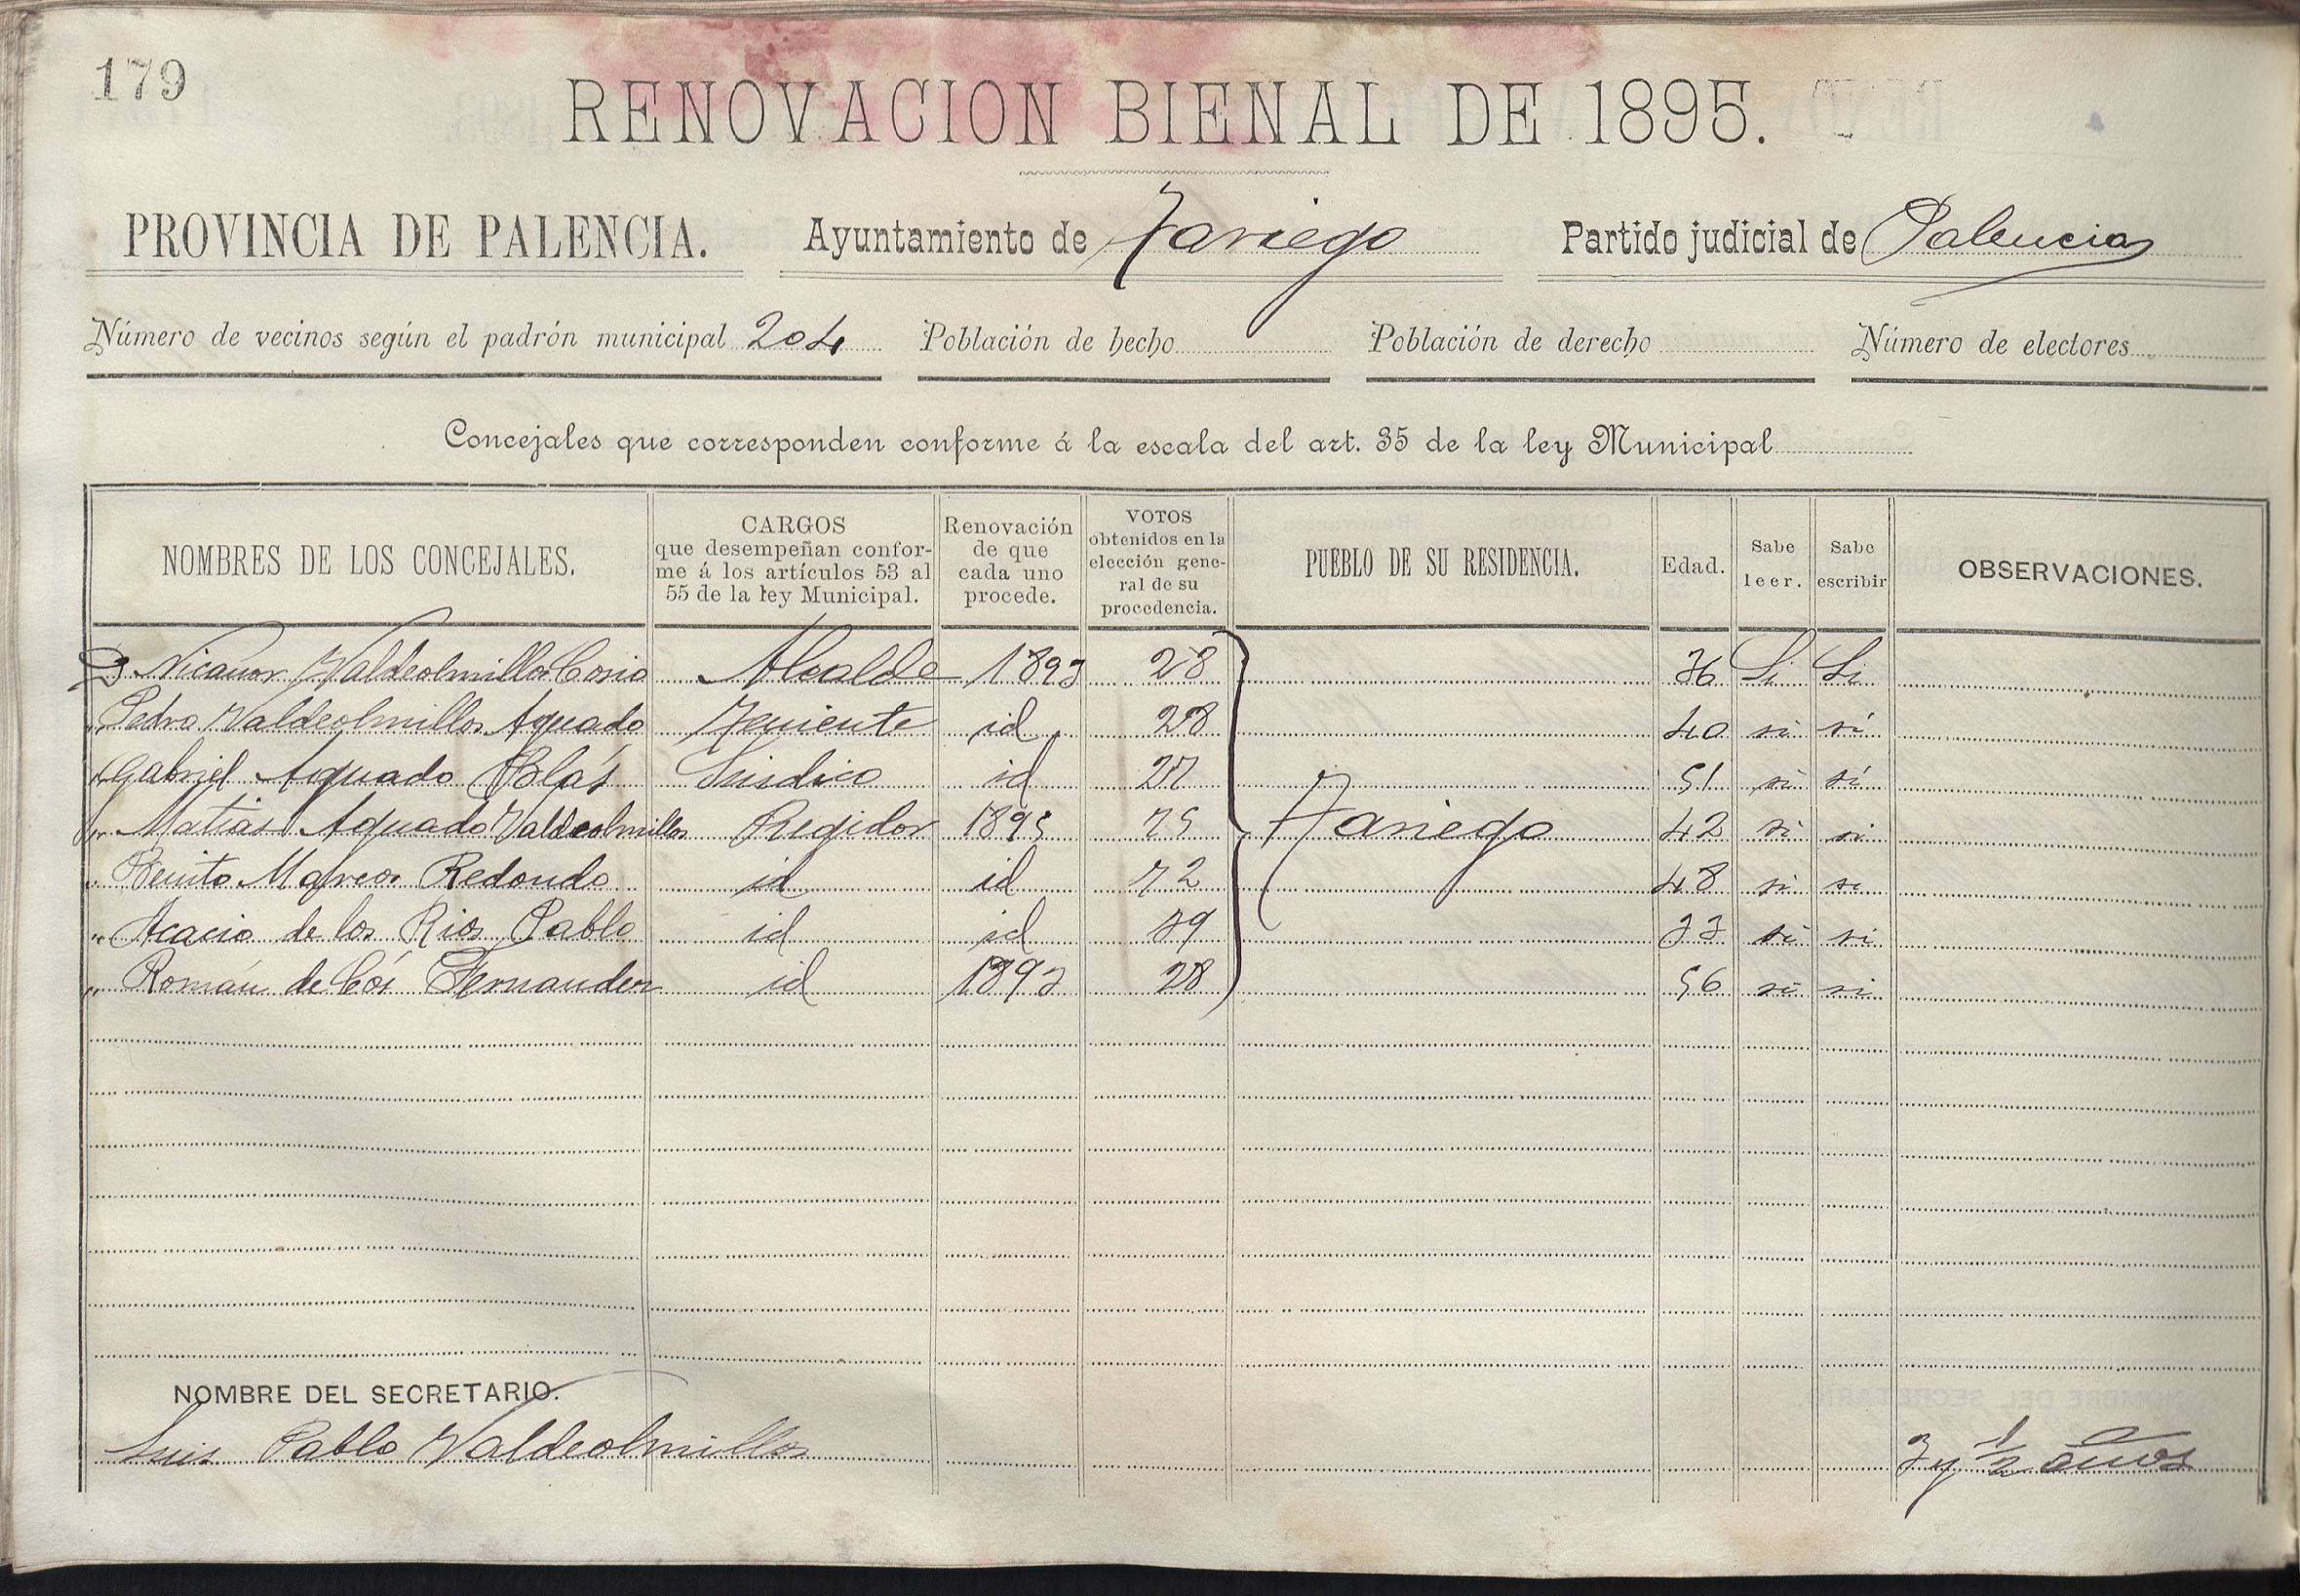 179
RENOVACION BIENAL DE 1895.
PROVINCIA DE PALENCIA. Ayuntamiento de Tariego Partido judicial de Palencia
Número de vecinos según el padrón municipal 204 Población de hecho Población de derecho Número de electores
Concejales que corresponden conforme á la escala del art. 35 de la ley Municipal
NOMBRES DE LOS CONCEJALES.
CARGOS
que desempeñan confor-
me á los artículos 53 al
55 de la ley Municipal.
Renovación
de que
cada uno
procede.
VOTOS
obtenidos en la
elección gene-
ral de su
procedencia.
PUEBLO DE SU RESIDENCIA.
Edad.
Sabe
leer.
Sabe
escribir
OBSERVACIONES.
D. Nicanor Valdeolmillos Coria Alcalde 1893 28 36 Si Si
" Pedro Valdeolmillos Aguado Teniente id 28 40 si si
" Gabriel Aguado Blás Sindico id 27 51 si si
" Matias Aguado Valdeolmillos Regidor 1895 75 Tariego 42 si si
" Benito Marcos Redondo id id 72 48 si si
" Acacio de los Rios Pablo id id 39 33 si si
" Román de Cós Fernandez id 1893 28 56 si si
NOMBRE DEL SECRETARIO.
Luis Pablo Valdeolmillos 3 y 1/2 años